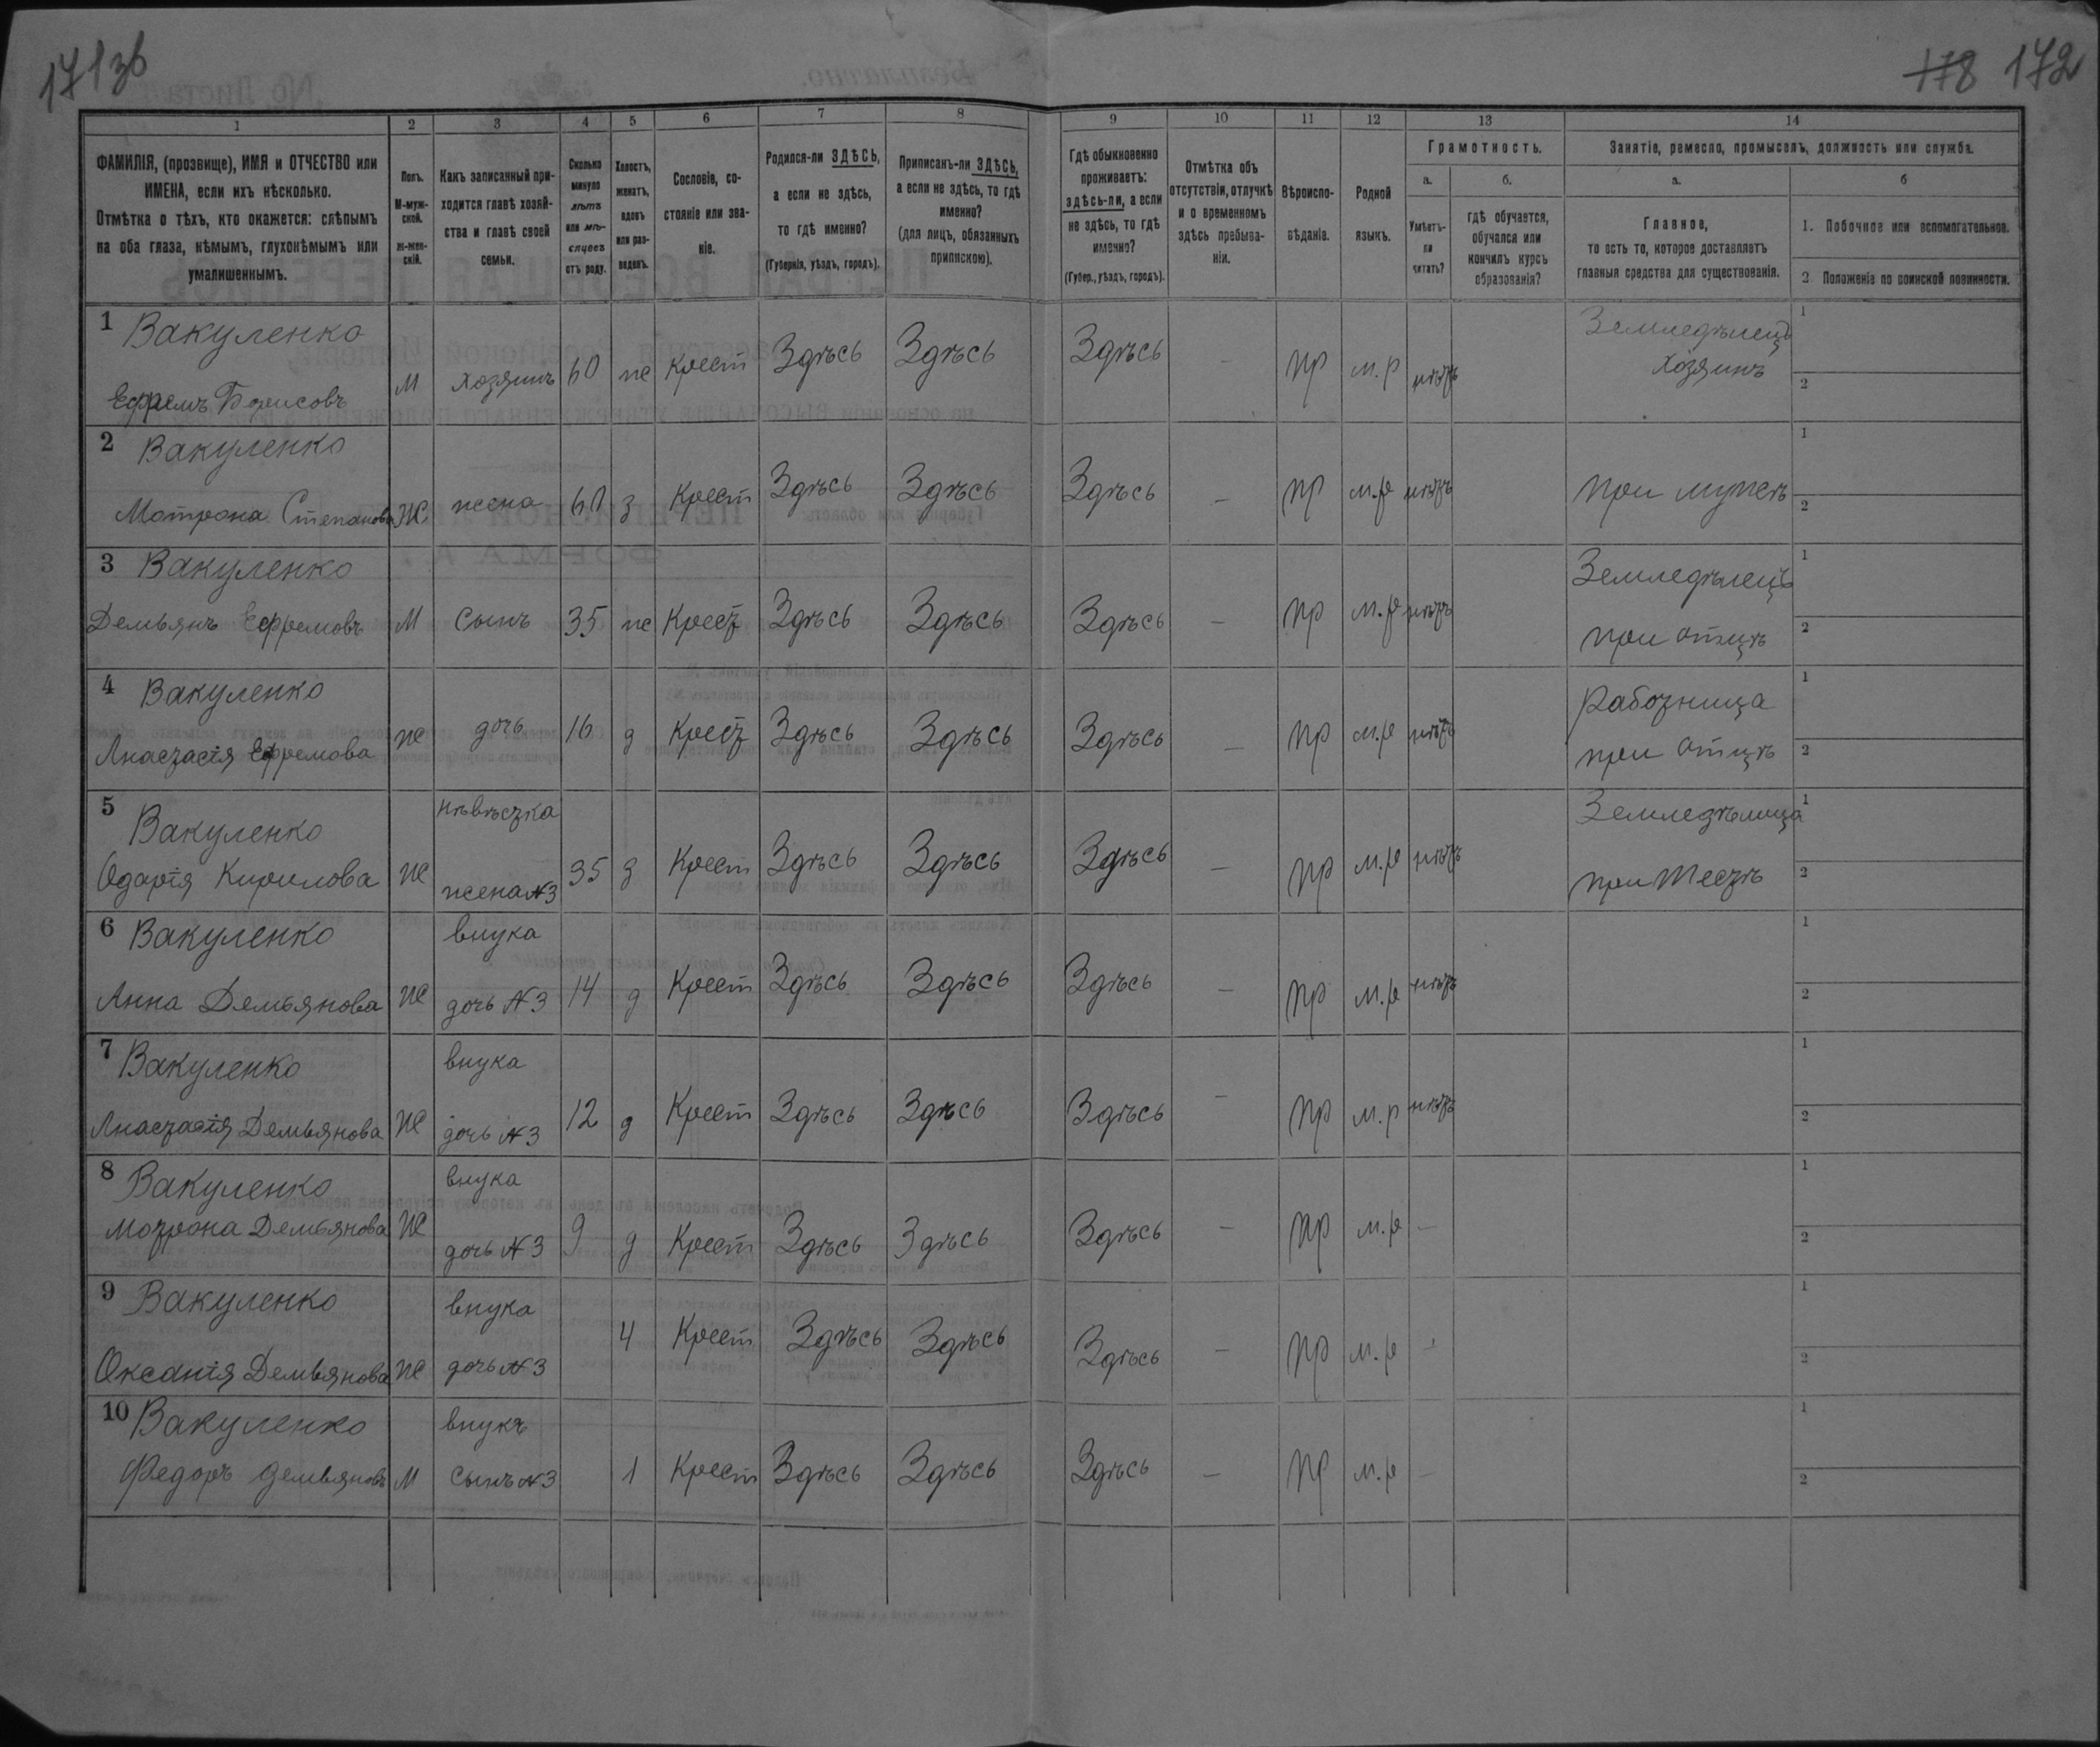 171 зв
178 172
1 2 3 4 5 6 7 8 9 10 11 12 13 14
ФАМИЛІЯ, (прозвище), ИМЯ и ОТЧЕСТВО или ИМЕНА, если ихъ нѣсколько.
Отмѣтка о тѣхъ, кто окажется: слѣпымъ на оба глаза, нѣмымъ, глухонѣмымъ или умалишеннымъ.
Полъ. М-муж-ской. Ж-жен-скій.
Какъ записанный при-ходится главѣ хозяй-ства и главѣ своей семьи.
Сколько минуло лѣтъ или мѣ-сяцевъ отъ роду.
Холостъ, женатъ, вдовъ или раз-веденъ.
Сословіе, со-стояніе или зва-ніе.
Родился-ли ЗДѢСЬ, а если не здѣсь, то гдѣ именно? (Губернія, уѣздъ, городъ).
Приписанъ-ли ЗДѢСЬ, а если не здѣсь, то гдѣ именно? (для лицъ, обязанныхъ припискою).
Гдѣ обыкновенно проживаетъ: здѣсь-ли, а если не здѣсь, то гдѣ именно? (Губер., уѣздъ, городъ).
Отмѣтка объ отсутствіи, отлучкѣ и о временномъ здѣсь пребыва-ніи.
Вѣроиспо-вѣданіе.
Родной языкъ.
Грамотность.
а. Умѣетъ-ли читать?
б. гдѣ обучается, обучался или кончилъ курсъ образованія?
Занятіе, ремесло, промыселъ, должность или служба.
а. Главное, то есть то, которое доставляетъ главныя средства для существованія.
б
1. Побочное или вспомогательное.
2 Положеніе по воинской повинности.
1 Вакуленко Земледѣлецъ 1
Ефремъ Борисовъ М хозяинъ 60 ж Крест Здѣсь Здѣсь Здѣсь — пр м.р нѣтъ хозяинъ 2
2 Вакуленко 1
Мотрона Степанова Ж жена 60 з Крест Здѣсь Здѣсь Здѣсь — пр м.р нѣтъ при мужѣ 2
3 Вакуленко Земледѣлецъ 1
Демьянъ Ефремовъ М сынъ 35 ж Крест Здѣсь Здѣсь Здѣсь — пр м.р нѣтъ при отцѣ 2
4 Вакуленко Работница 1
Анастасія Ефремова Ж дочь 16 д Крест Здѣсь Здѣсь Здѣсь — пр м.р нѣтъ при отцѣ 2
5 Вакуленко нѣвѣстка Земледѣлица 1
Одарія Кирилова Ж жена №3 35 з Крест Здѣсь Здѣсь Здѣсь — пр м.р нѣтъ при тестѣ 2
6 Вакуленко внука 1
Анна Демьянова Ж дочь №3 14 д Крест Здѣсь Здѣсь Здѣсь — пр м.р нѣтъ 2
7 Вакуленко внука 1
Анастасія Демьянова Ж дочь №3 12 д Крест Здѣсь Здѣсь Здѣсь — пр м.р нѣтъ 2
8 Вакуленко внука 1
Мотрона Демьянова Ж дочь №3 9 д Крест Здѣсь Здѣсь Здѣсь — пр м.р — 2
9 Вакуленко внука 1
Оксанія Демьянова Ж дочь №3 4 Крест Здѣсь Здѣсь Здѣсь — пр м.р — 2
10 Вакуленко внукъ 1
Федоръ Демьяновъ М сынъ №3 1 Крест Здѣсь Здѣсь Здѣсь — пр м.р — 2